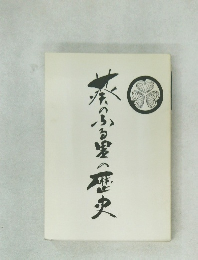 葵のふる里の歴史